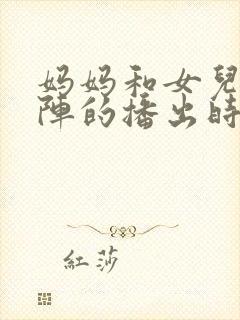 妈妈和女兒
陣的播出時
紅莎